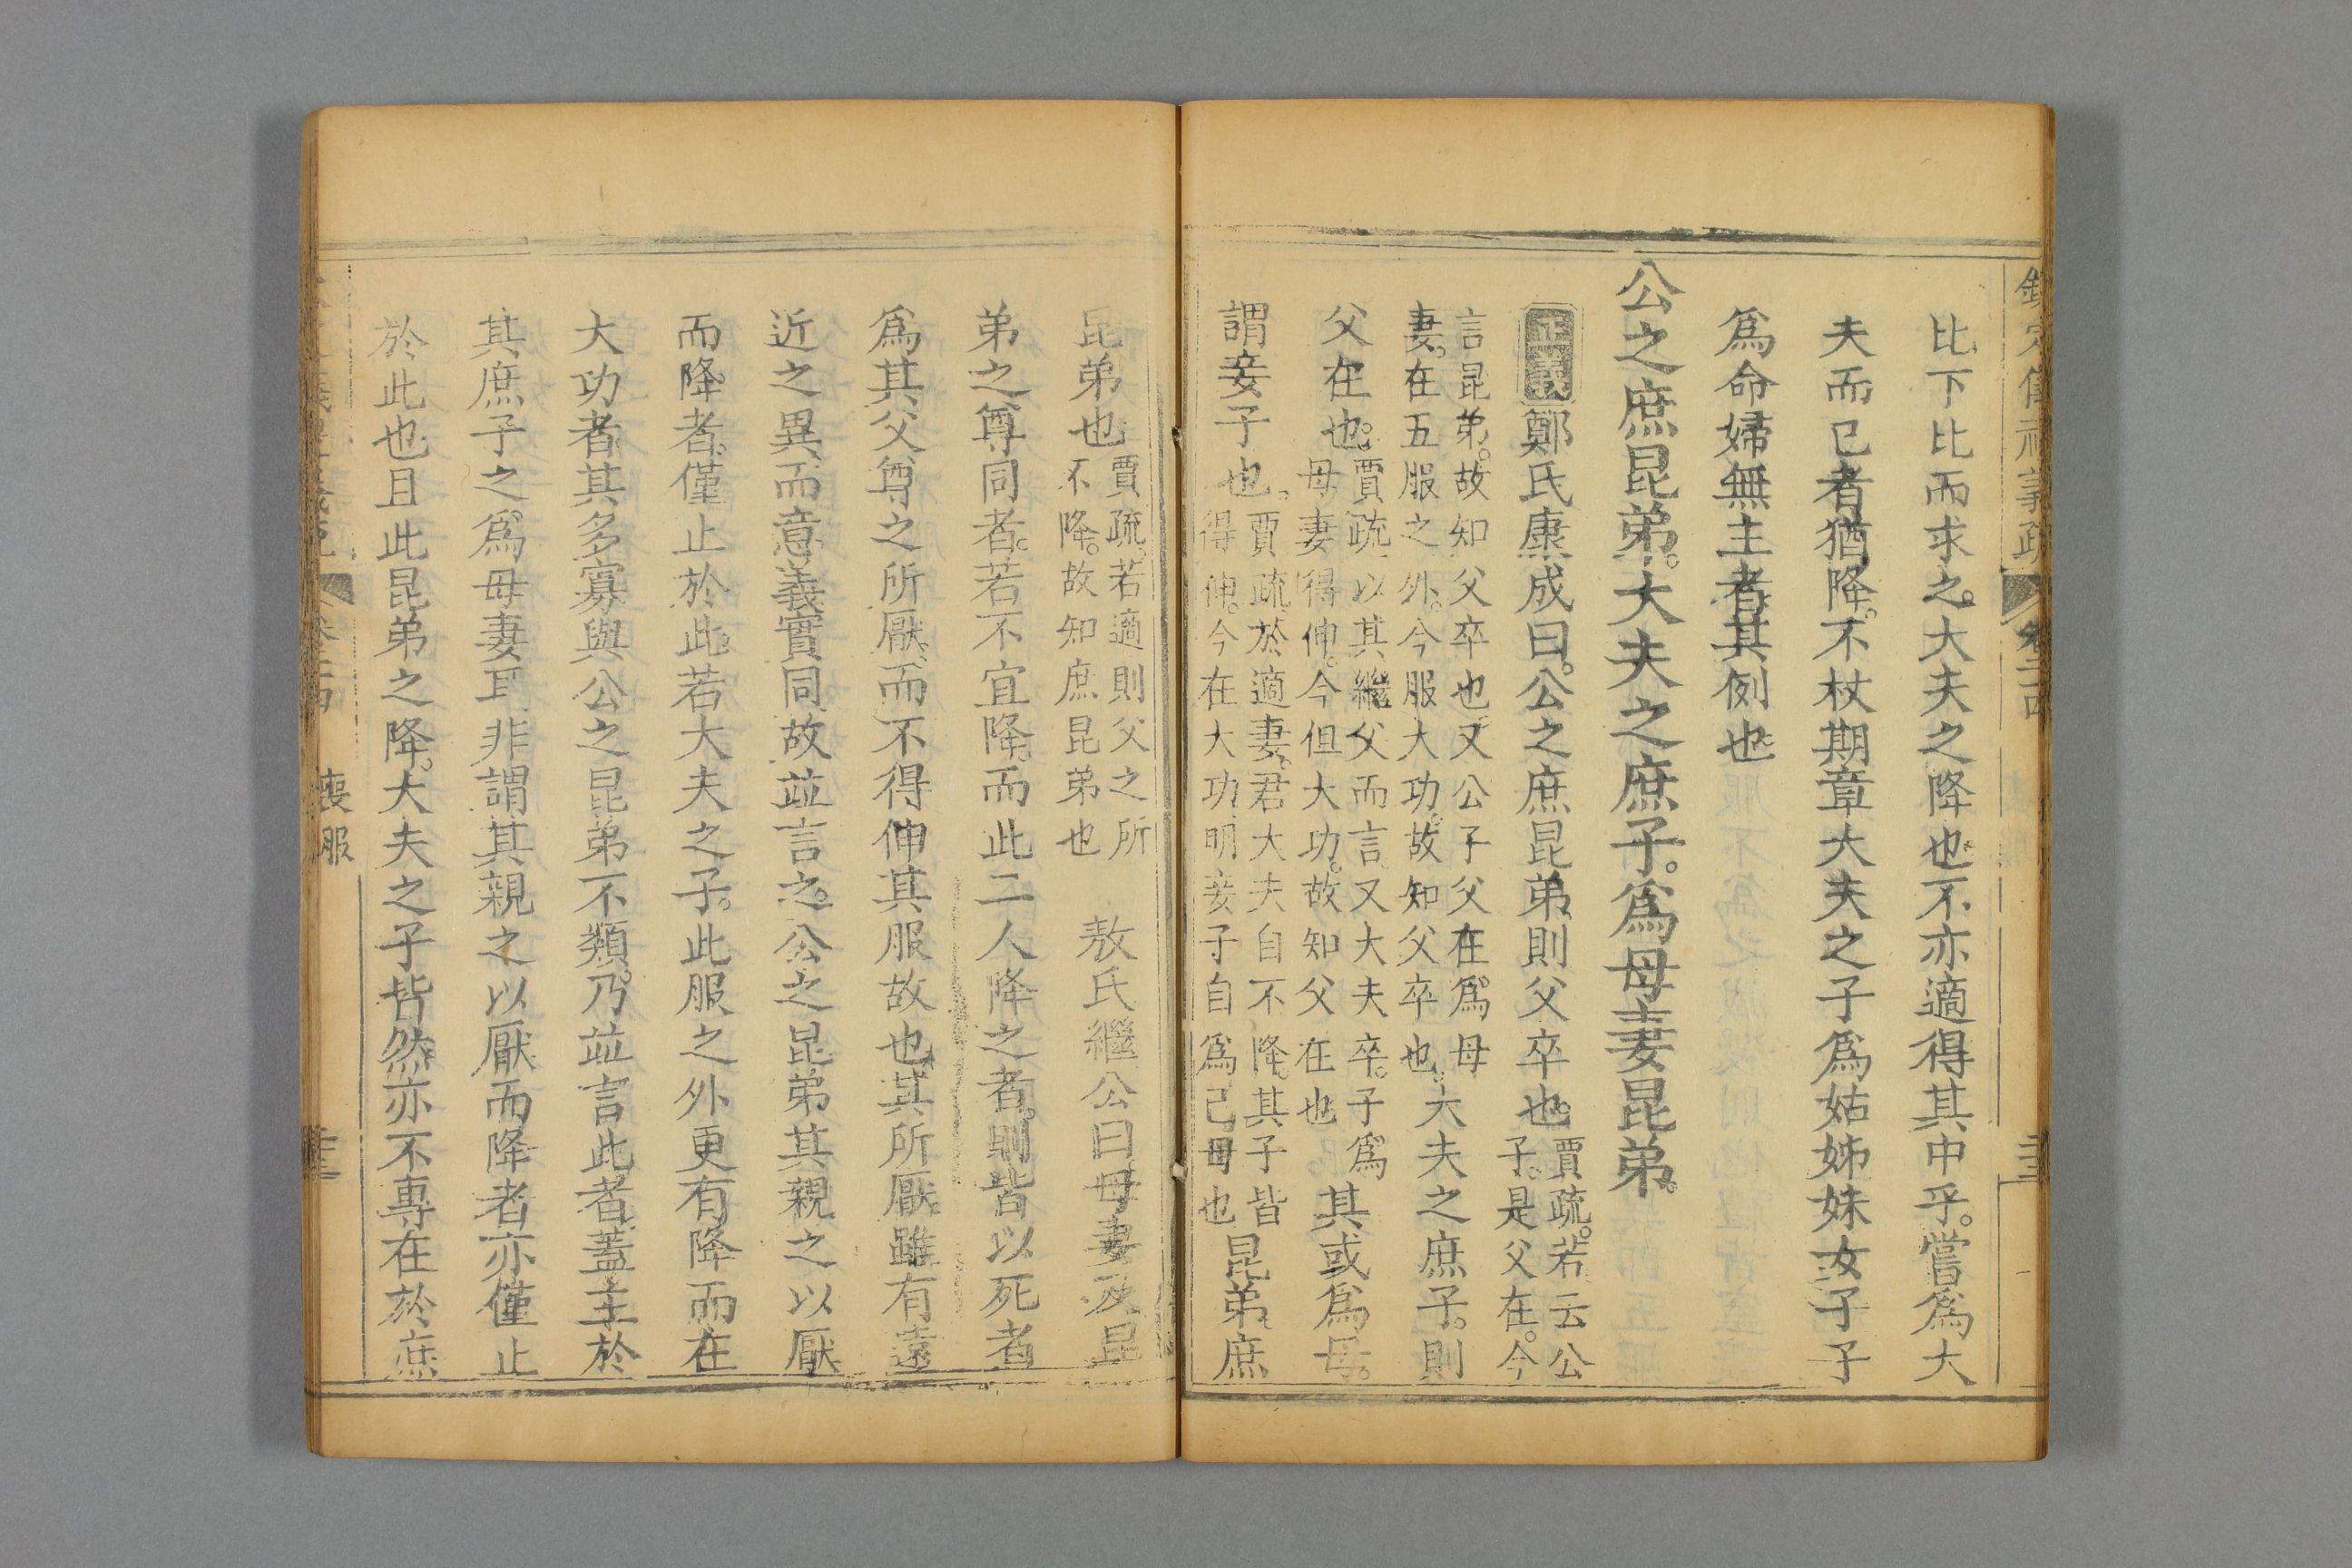 比下比而求之大夫之降也不亦適得其中乎嘗爲大
夫而已者猶降不杖期章大夫之子爲姑姊妹女子子
爲命婦無主者其例也
公之庶昆弟大夫之庶子爲母妻昆弟
正義鄭氏康成曰公之庶昆弟則父卒也賈疏若云公子是父在今
言昆弟故知父卒也又公子父在爲母妻在五服之外今服大功故知父卒也大夫之庶子則
父在也賈疏以其繼父而言又大夫卒子爲母妻得伸今但大功故知父在也其或爲母
謂妾子也賈疏於適妻君大夫自不降其子皆得伸今在大功明妾子自爲己母也昆弟庶
昆弟也賈疏若適則父之所不降故知庶昆弟也 敖氏繼公曰母妻及昆
弟之尊同者若不宜降而此二人降之者則皆以死者
爲其父尊之所厭而不得伸其服故也其所厭雖有遠
近之異而意義實同故竝言之公之昆弟其親之以厭
而降者僅止於此若大夫之子此服之外更有降而在
大功者其多寡與公之昆弟不類乃竝言此者蓋主於
其庶子之爲母妻耳非謂其親之以厭而降者亦僅止
於此也且此昆弟之降大夫之子皆然亦不專在於庶
喪服